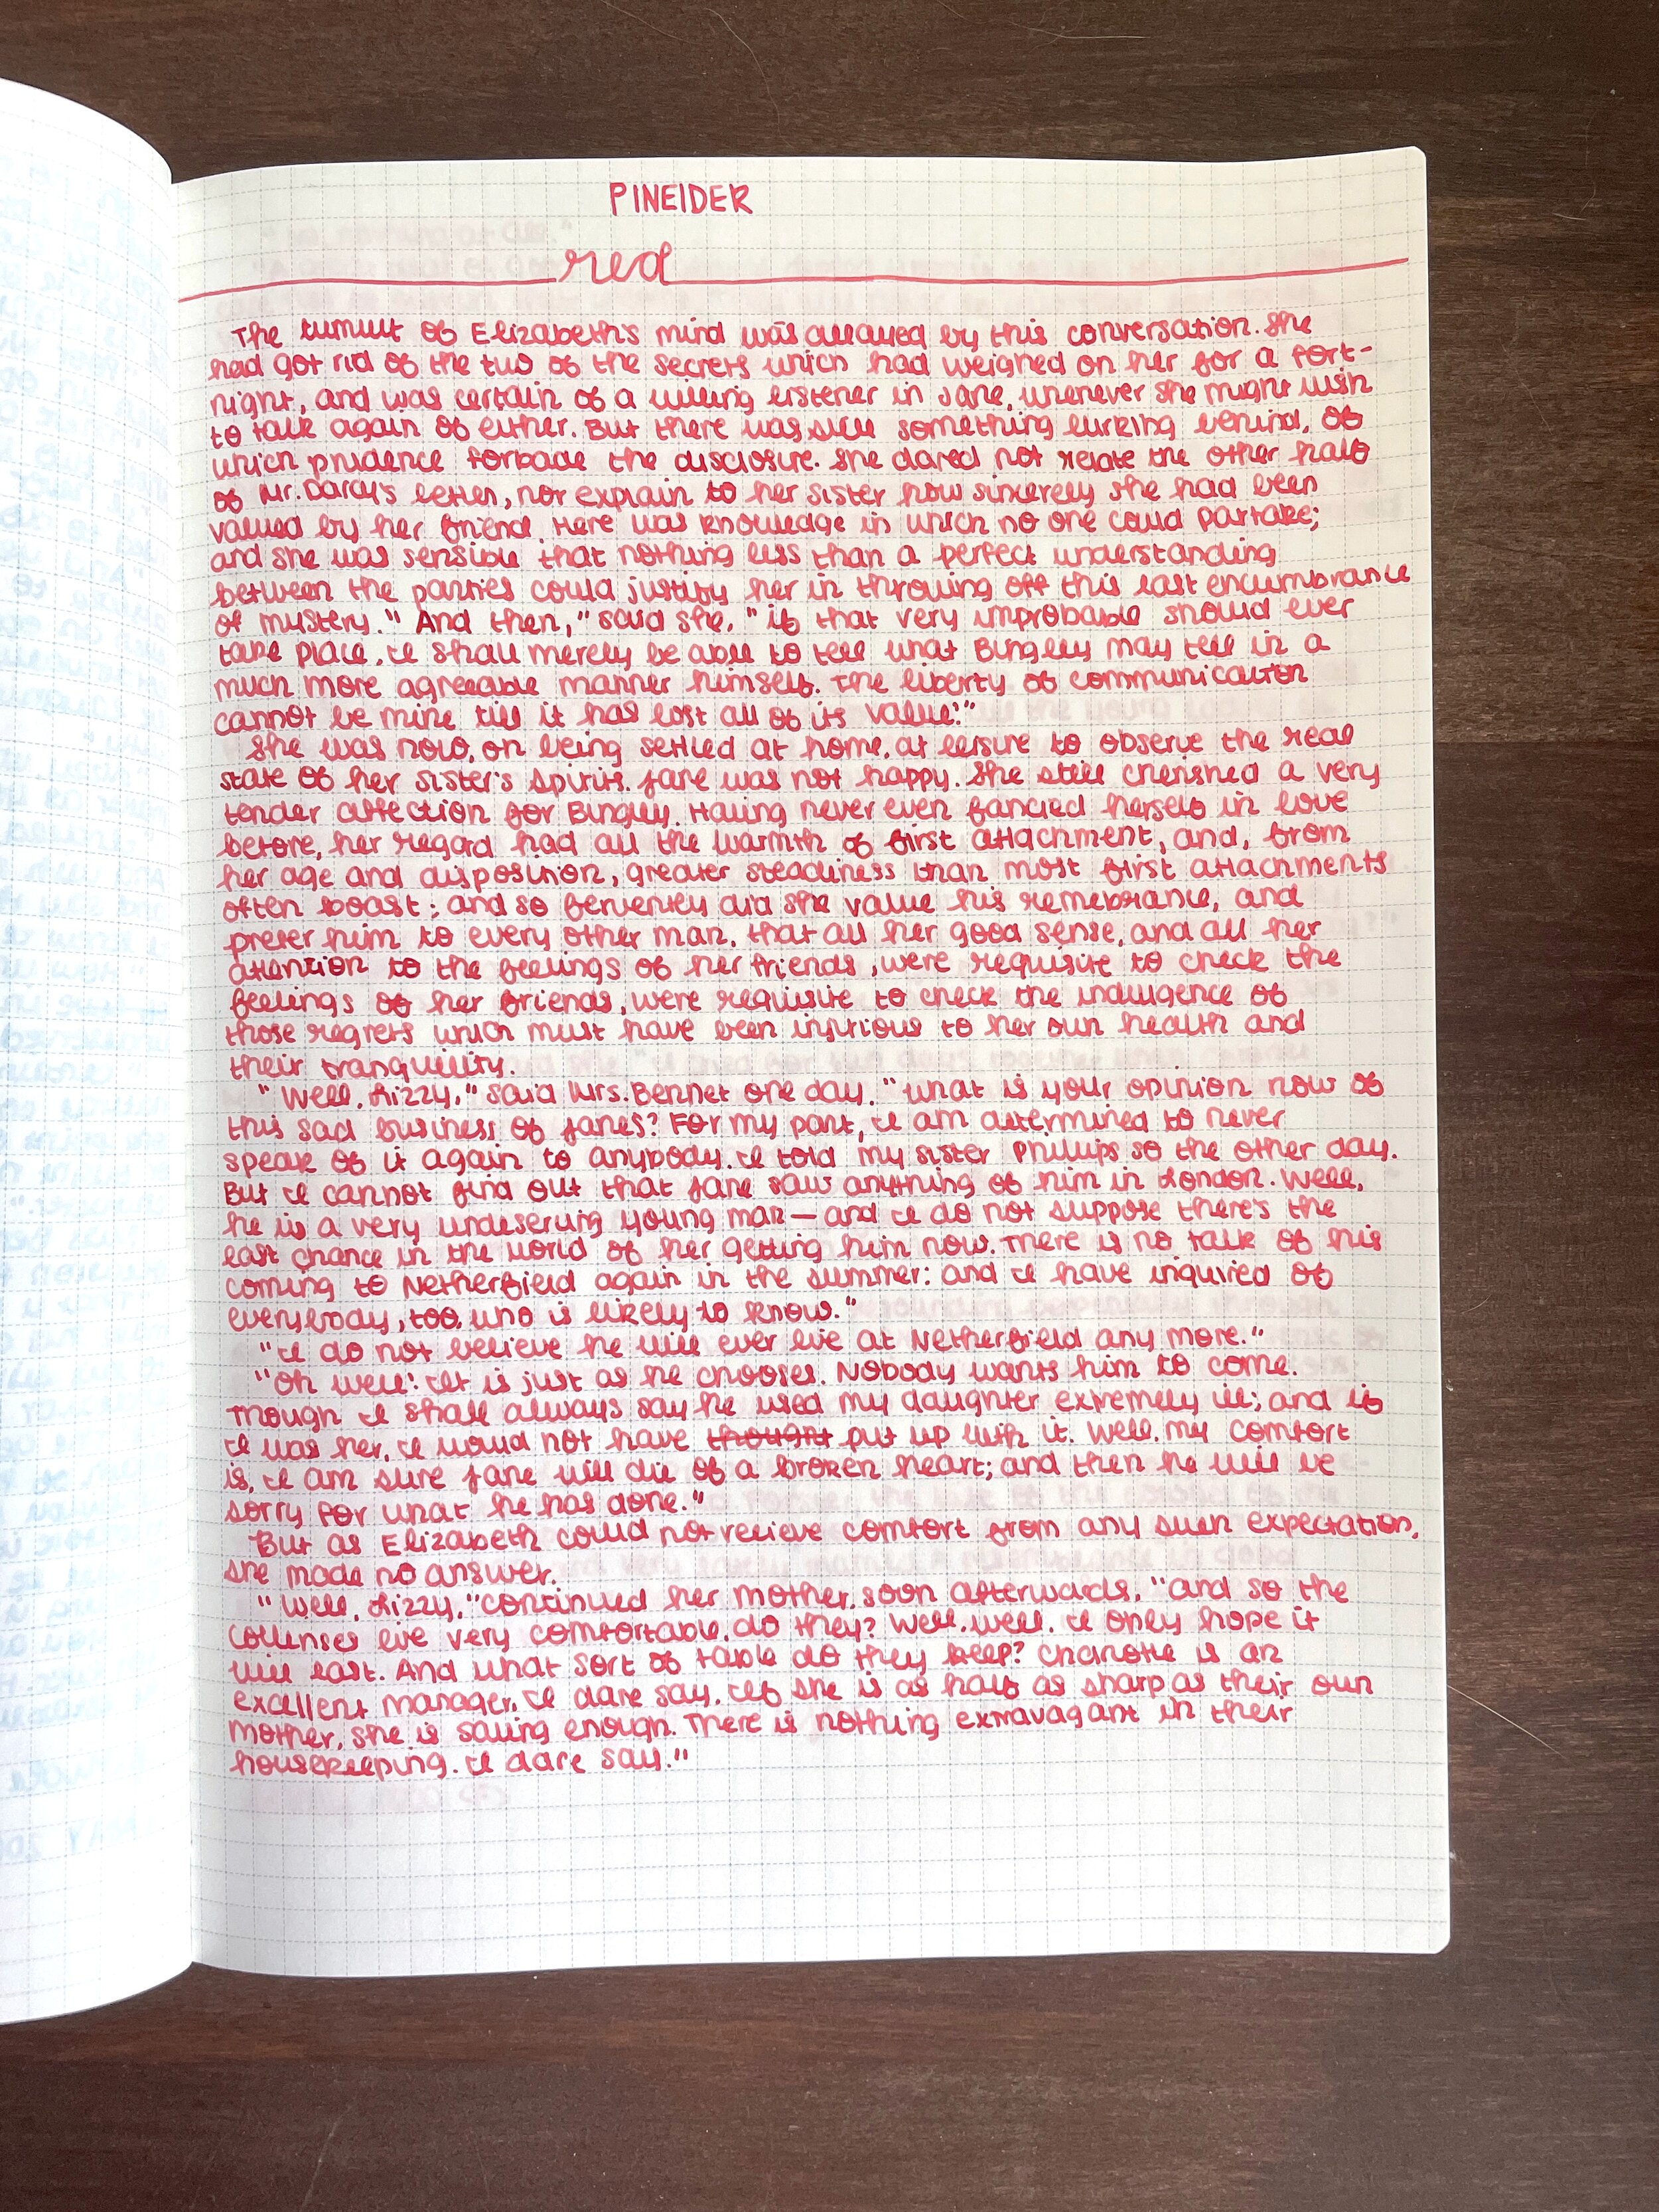 PINEIDER
red
The tumult of Elizabeth's mind was allayed by this conversation. She
had got rid of the two of the secrets which had weighed on her for a fort-
night, and was certain of a willing listener in Jane, whenever she might wish
to talk again of either. But there was still something lurking behind, of
which prudence forbade the disclosure. She dared not relate the other half
of Mr. Darcy's letter, nor explain to her sister how sincerely she had been
valued by her friend. Here was knowledge in which no one could partake;
and she was sensible that nothing less than a perfect understanding
between the parties could justify her in throwing off this last encumbrance
of mystery. "And then," said she, "if that very improbable should ever
take place, I shall merely be able to tell what Bingley may tell in a
much more agreeable manner himself. The liberty of communication
cannot be mine till it has lost all of its value!"
She was now, on being settled at home, at leisure to observe the real
state of her sister's spirits. Jane was not happy. She still cherished a very
tender affection for Bingley. Having never even fancied herself in love
before, her regard had all the warmth of first attachment, and, from
her age and disposition, greater steadiness than most first attachments
often boast; and so fervently did she value his remembrance, and
prefer him to every other man, that all her good sense, and all her
attention to the feelings of her friends, were requisite to check the
feelings of her friends, were requisite to check the indulgence of
those regrets which must have been injurious to her own health and
their tranquillity.
"Well, Lizzy," said Mrs. Bennet one day, "what is your opinion now of
this sad business of Jane's? For my part, I am determined to never
speak of it again to anybody. I told my sister Philips so the other day.
But I cannot find out that Jane saw anything of him in London. Well,
he is a very undeserving young man — and I do not suppose there's the
least chance in the world of her getting him now. There is no talk of his
coming to Netherfield again in the summer: and I have inquired of
everybody, too, who is likely to know."
"I do not believe he will ever live at Netherfield any more."
"Oh well! It is just as he chooses. Nobody wants him to come.
Though I shall always say he used my daughter extremely ill; and if
I was her, I would not have thought put up with it. Well, my comfort
is, I am sure Jane will die of a broken heart; and then he will be
sorry for what he has done."
But as Elizabeth could not recieve comfort from any such expectation,
she made no answer.
"Well, Lizzy," continued her mother, soon afterwards, "and so the
Collinses live very comfortable, do they? Well, well, I only hope it
will last. And what sort of table do they keep? Charlotte is an
excellent manager, I dare say. If she is as half as sharp as their own
mother, she is saving enough. There is nothing extravagant in their
housekeeping, I dare say."